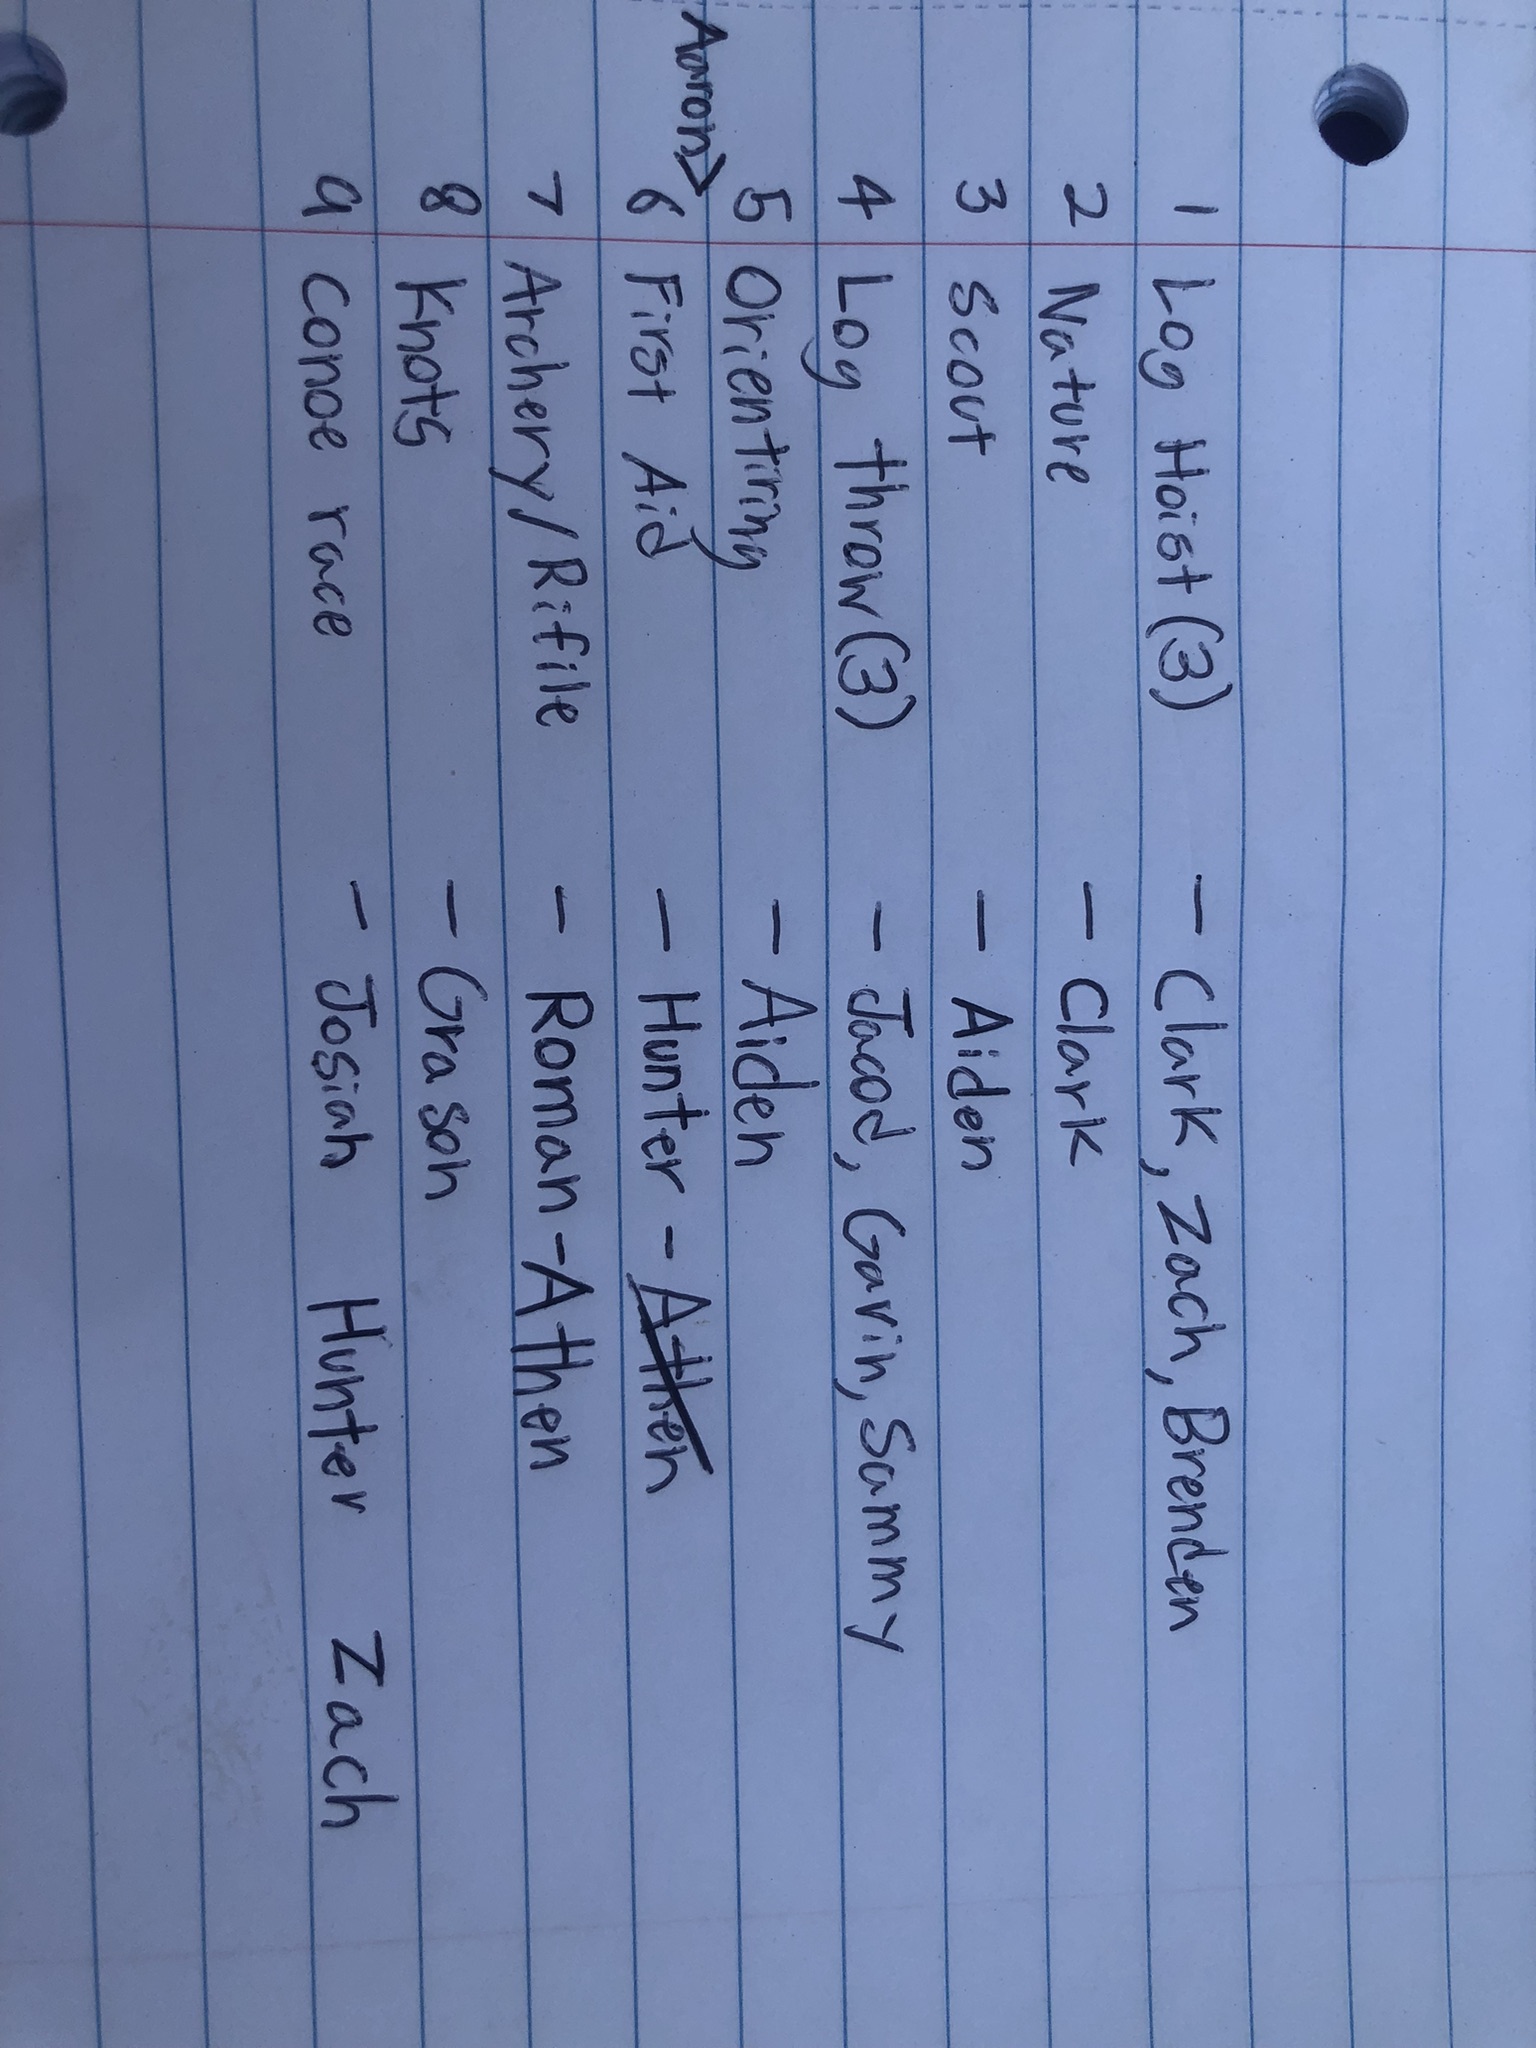 1 Log Hoist (3) - Clark, Zach, Brenden
2 Nature - Clark
3 Scout - Aiden
4 Log throw (3) - Jacod, Gavin, Sammy
5 Orientiring - Aiden
Aaron>
6 First Aid - Hunter - Athen
7 Archery/Rifile - Roman - Athen
8 Knots - Grason
9 Conoe race - Josiah Hunter Zach